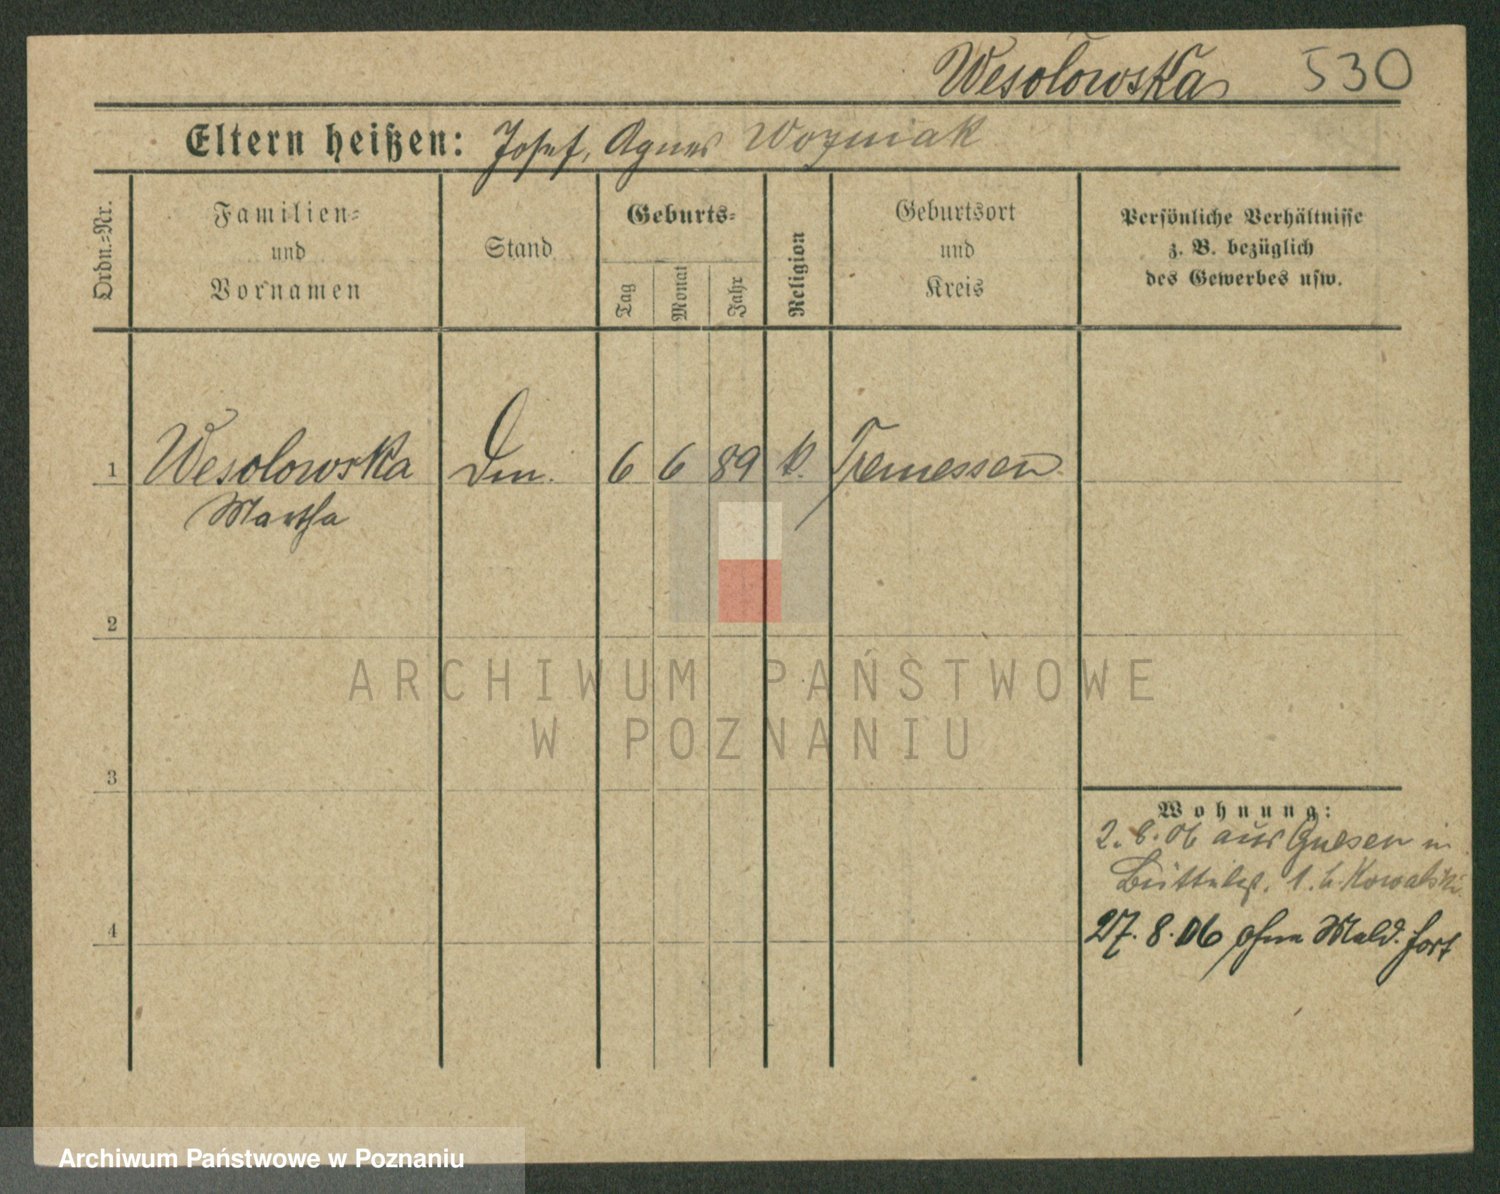 Wesolowska 530
Eltern heißen: Josef, Agnes Wozniak
Ordn.=Nr.
Familien=
und
Vornamen
Stand
Geburts=
Tag
Monat
Jahr
Religion
Geburtsort
und
Kreis
Persönliche Verhältnisse
z. B. bezüglich
des Gewerbes usw.
1 Wesolowska Dm. 6 6 89 k. Tremessen
Martha
2
3
4
Wohnung:
2. 8. 06 aus Gnesen in
1. b. Kowalski
27. 8. 06 ohne Meld. fort
ARCHIWUM PAŃSTWOWE
W POZNANIU
Archiwum Państwowe w Poznaniu